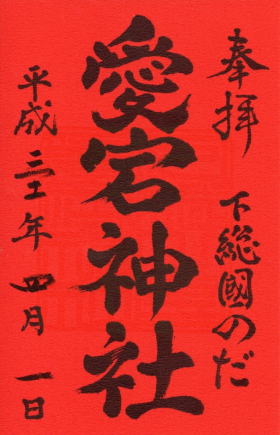 奉拝 下総國のだ
愛宕神社
平成三十年 四月 一日